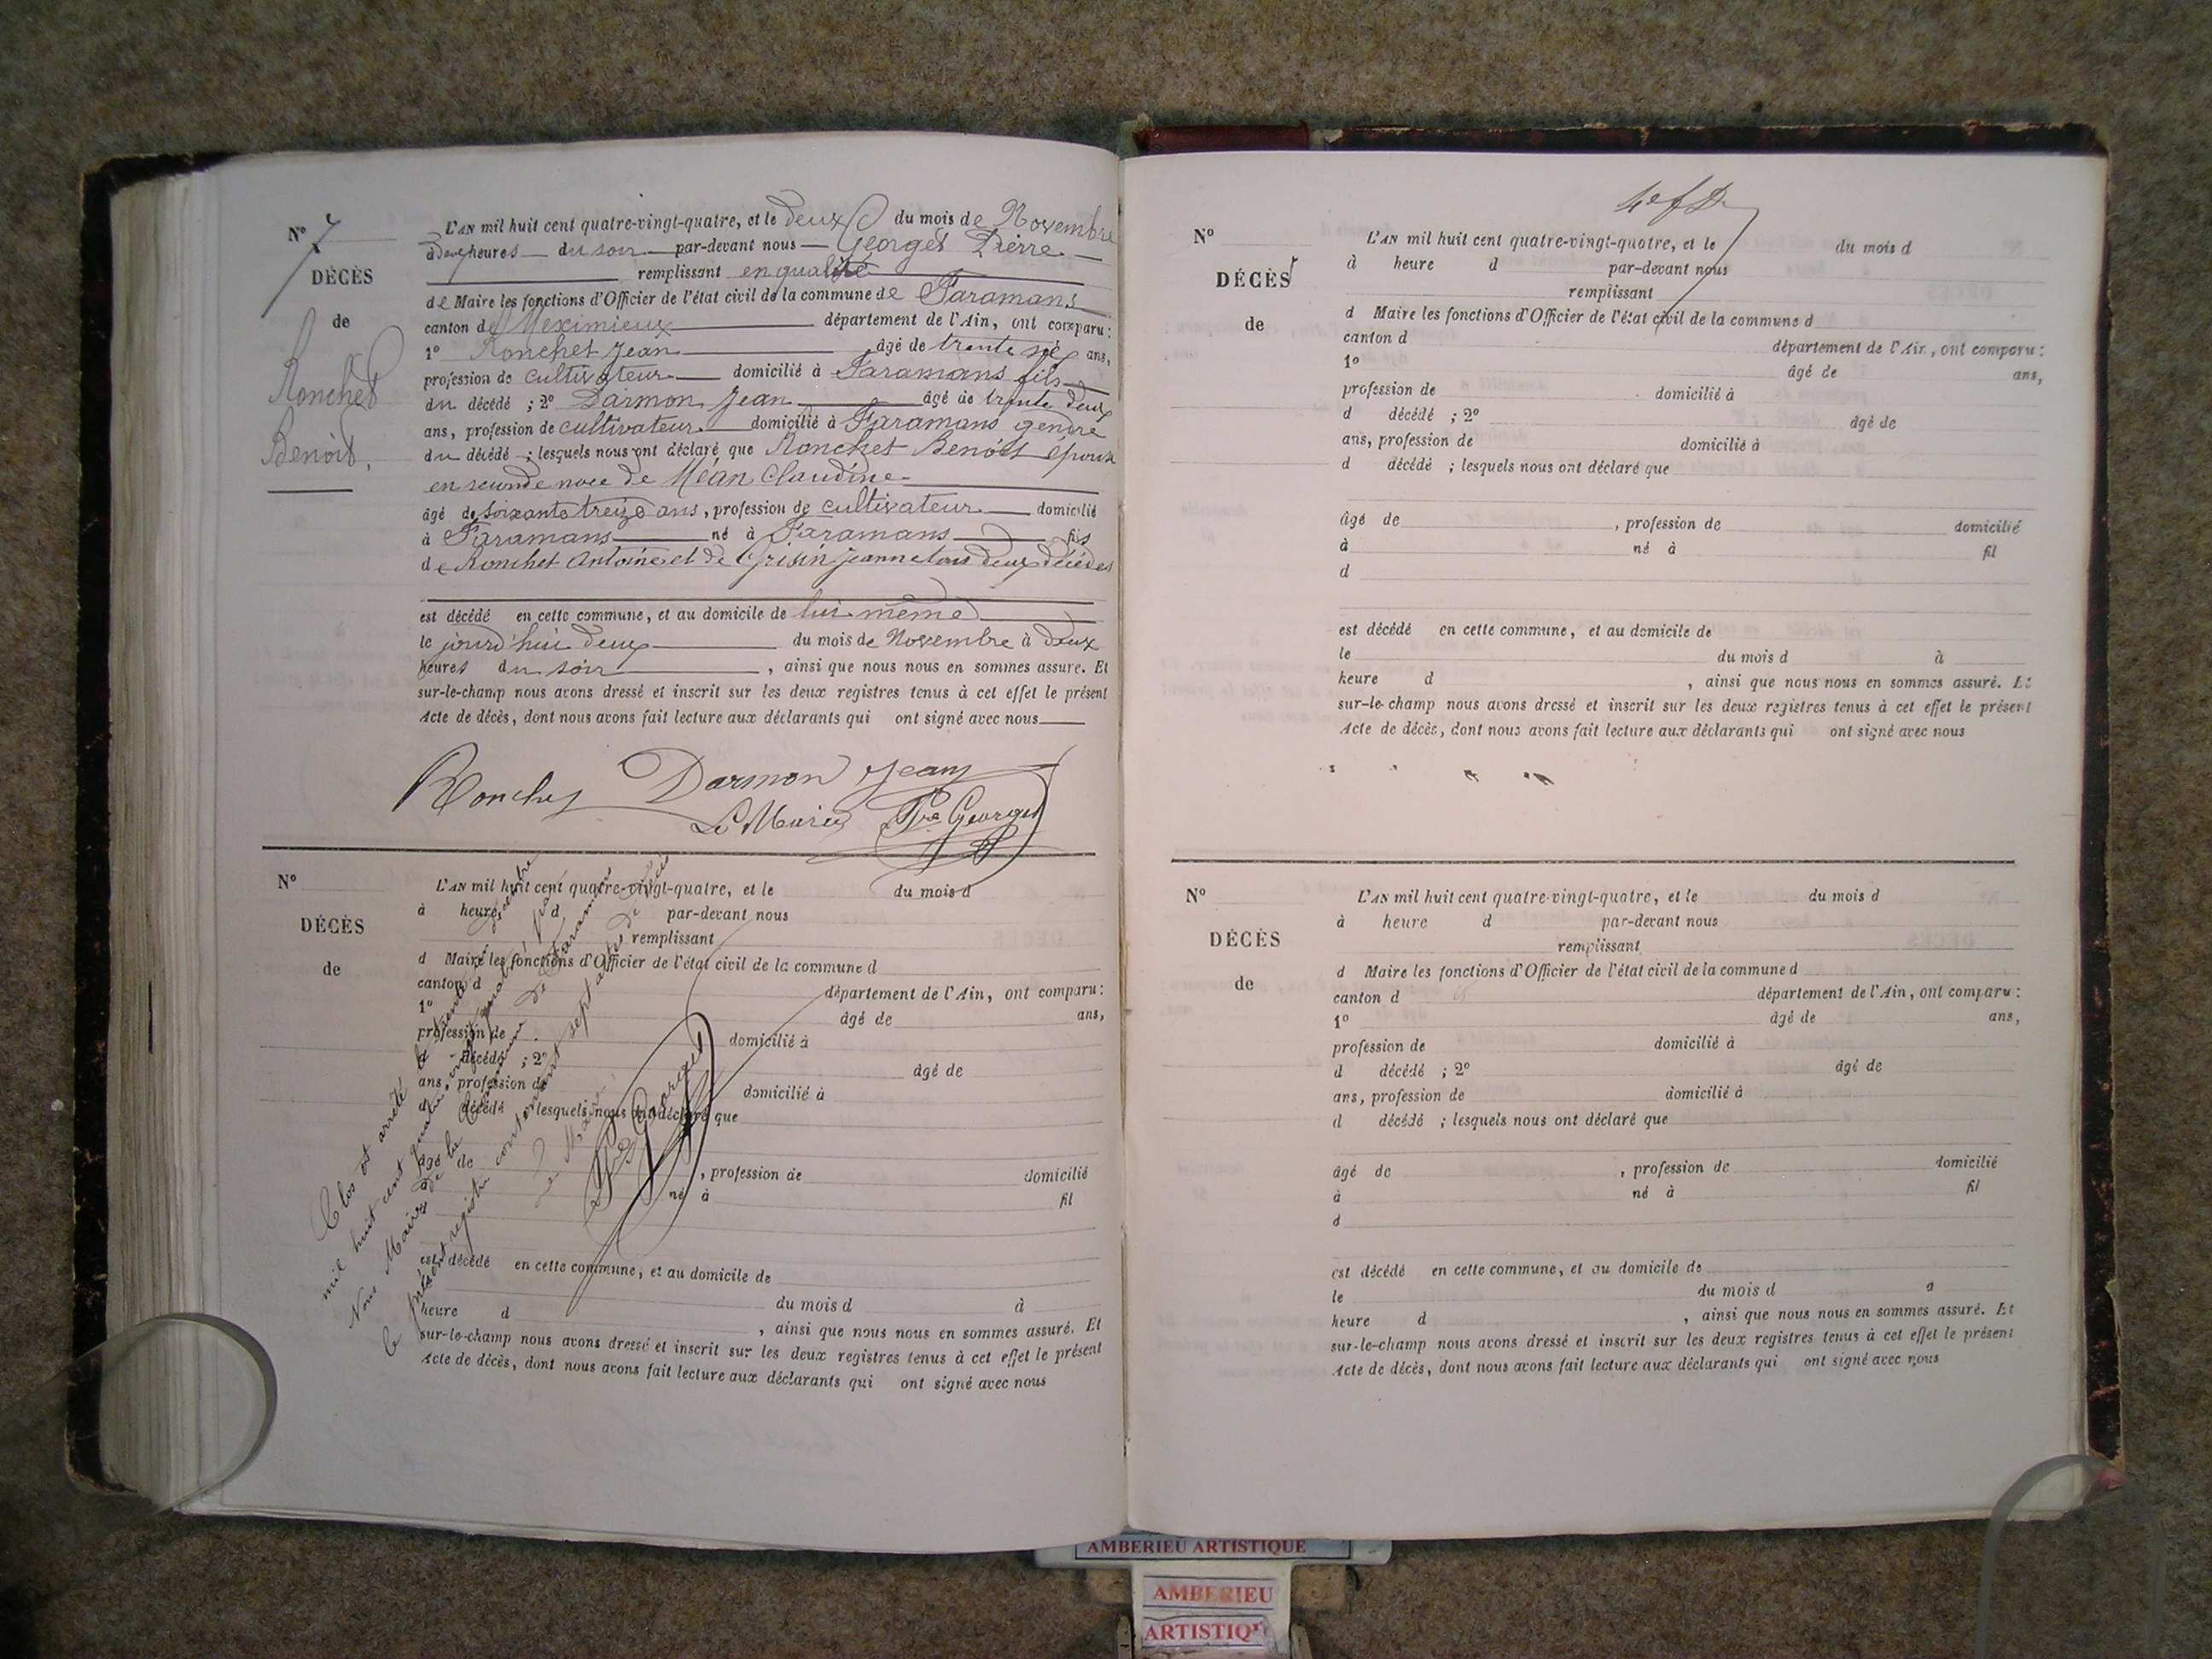 N° 7
DÉCÈS
de
Ronchet
Benoit.
L'AN mil huit cent quatre-vingt-quatre, et le deux du mois de Novembre
à deux heures du soir par-devant nous Georges Pierre
remplissant en qualité
de Maire les fonctions d'Officier de l'état civil de la commune de Faramans
canton de Meximieux département de l'Ain, ont comparu :
1° Ronchet Jean âgé de trente six ans,
profession de cultivateur domicilié à Faramans fils
du décédé ; 2° Darmon Jean âgé de trente deux
ans, profession de cultivateur domicilié à Faramans gendre
du décédé ; lesquels nous ont déclaré que Ronchet Benoit époux
en seconde noce de Méan Claudine
âgé de soixante treize ans, profession de cultivateur domicilié
à Faramans né à Faramans fils
de Ronchet Antoine et de Grisin Jeanne tous deux décédés
est décédé en cette commune, et au domicile de lui même
le jourd'hui deux du mois de Novembre à deux
heures du soir , ainsi que nous nous en sommes assuré. Et
sur-le-champ nous avons dressé et inscrit sur les deux registres tenus à cet effet le présent
Acte de décès, dont nous avons fait lecture aux déclarants qui ont signé avec nous
Ronchet Darmon Jean
Le Maire Pre Georges
N°
DÉCÈS
de
L'AN mil huit cent quatre-vingt-quatre, et le du mois d
à heure d par-devant nous
remplissant
d Maire les fonctions d'Officier de l'état civil de la commune d
canton d département de l'Ain, ont comparu :
1° âgé de ans,
profession de domicilié à
d décédé ; 2° âgé de
ans, profession de domicilié à
d décédé ; lesquels nous ont déclaré que
âgé de , profession de domicilié
à né à fil
est décédé en cette commune, et au domicile de
du mois d à
heure d , ainsi que nous nous en sommes assuré. Et
sur-le-champ nous avons dressé et inscrit sur les deux registres tenus à cet effet le présent
Acte de décès, dont nous avons fait lecture aux déclarants qui ont signé avec nous
Clos et arrêté le trente et
mil huit cent quatre vingt quatre par
Nous Maire de la Commune de Faramans
le présent registre contenant sept actes de décès
Le Maire
Pre Georges
N°
DÉCÈS
de
L'AN mil huit cent quatre-vingt-quatre, et le du mois d
à heure d par-devant nous
remplissant
d Maire les fonctions d'Officier de l'état civil de la commune d
canton d département de l'Ain, ont comparu :
1° âgé de ans,
profession de domicilié à
d décédé ; 2° âgé de
ans, profession de domicilié à
d décédé ; lesquels nous ont déclaré que
âgé de , profession de domicilié
à né à fil
d
est décédé en cette commune, et au domicile de
le du mois d à
heure d , ainsi que nous nous en sommes assuré. Et
sur-le-champ nous avons dressé et inscrit sur les deux registres tenus à cet effet le présent
Acte de décès, dont nous avons fait lecture aux déclarants qui ont signé avec nous
N°
DÉCÈS
de
L'AN mil huit cent quatre-vingt-quatre, et le du mois d
à heure d par-devant nous
remplissant
d Maire les fonctions d'Officier de l'état civil de la commune d
canton d département de l'Ain, ont comparu :
1° âgé de ans,
profession de domicilié à
d décédé ; 2° âgé de
ans, profession de domicilié à
d décédé ; lesquels nous ont déclaré que
âgé de , profession de domicilié
à né à fil
d
est décédé en cette commune, et au domicile de
le du mois d à
heure d , ainsi que nous nous en sommes assuré. Et
sur-le-champ nous avons dressé et inscrit sur les deux registres tenus à cet effet le présent
Acte de décès, dont nous avons fait lecture aux déclarants qui ont signé avec nous
AMBERIEU ARTISTIQUE
AMBERIEU
ARTISTIQU